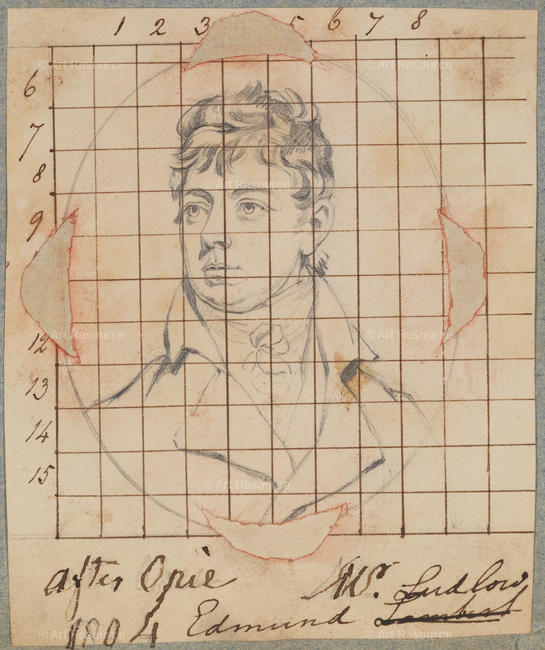 1 2 3 5 6 7 8
6
7
8
9
12
13
14
15
after Opie
Mr. Ludlow
1804 Edmund Lambert
© Art Resource
© Art Resource
© Art Resource
© Art Resource
© Art Resource
© Art Resource
© Art Resource
© Art Resource
© Art Resource